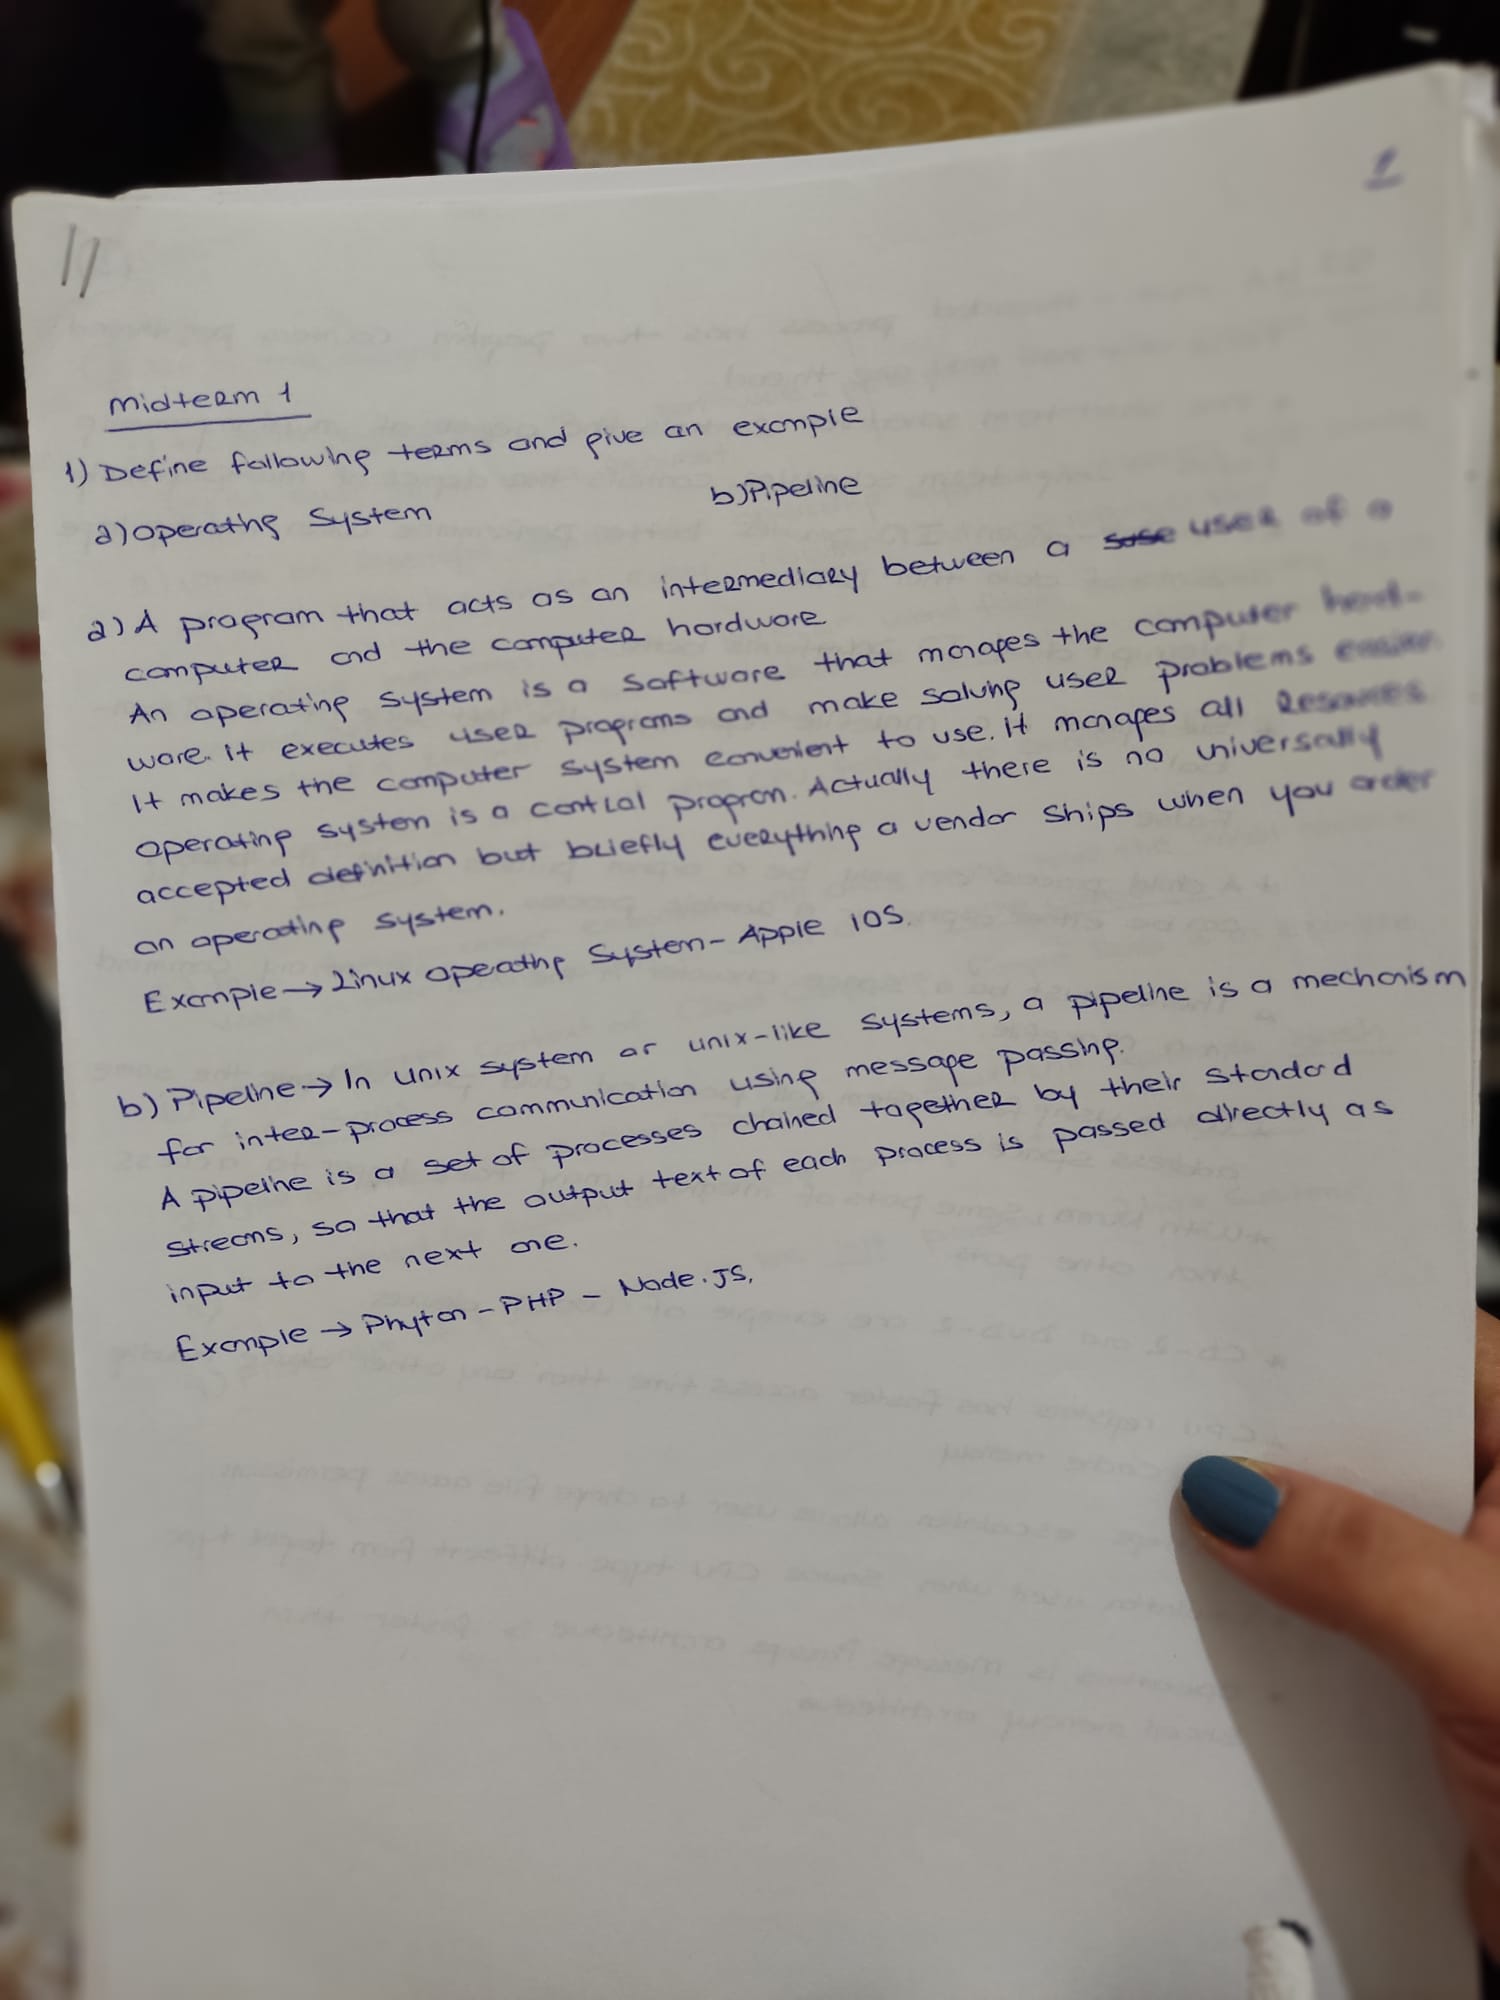 1
Midterm 1
1) Define following terms and give an example
a) Operating System b) Pipeline
a) A program that acts as an intermediary between a user of a
computer and the computer hardware.
An operating system is a software that manages the computer hard-
ware. It executes user programs and make solving user problems easier.
It makes the computer system convenient to use. It manages all Resources
operating system is a control program. Actually there is no universally
accepted definition but briefly everything a vendor ships when you order
an operating system.
Example → Linux Operating System - Apple IOS.
b) Pipeline → In unix system or unix-like systems, a pipeline is a mechanism
for inter-process communication using message passing.
A pipeline is a set of processes chained together by their standard
streams, so that the output text of each process is passed directly as
input to the next one.
Example → Phyton - PHP - Node.JS.